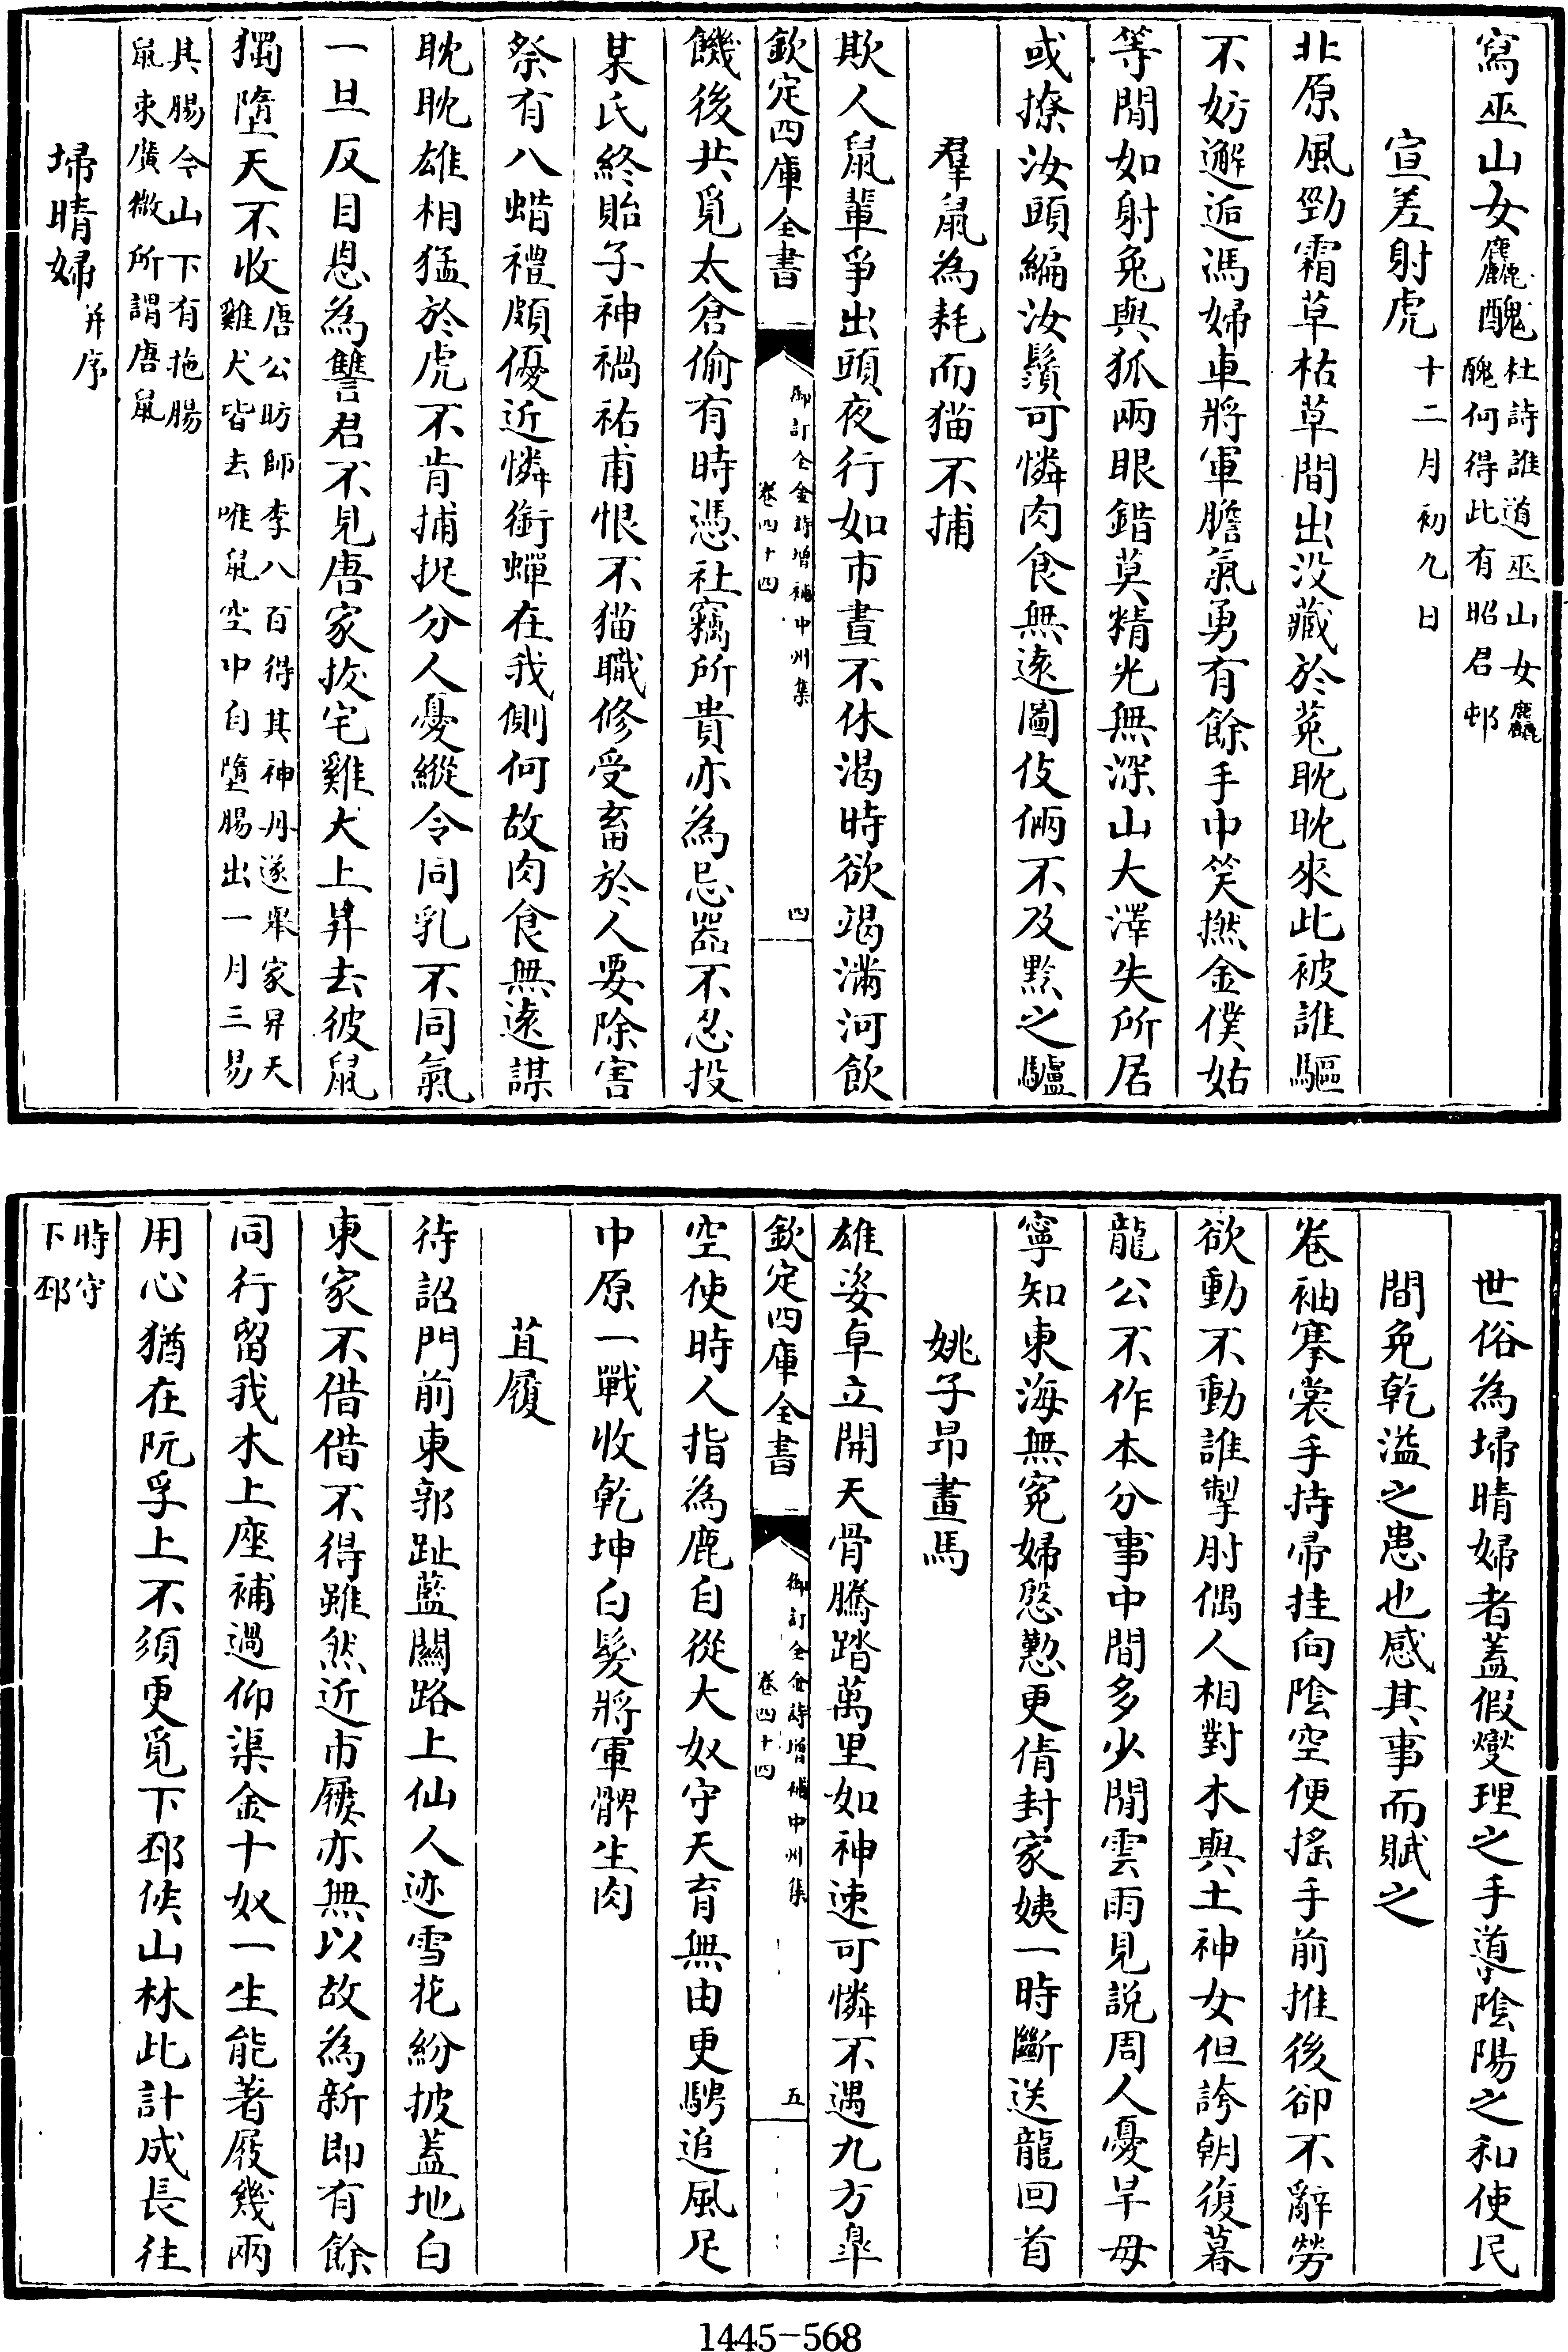 寫巫山女麤醜杜詩誰道巫山女麤醜何得此有昭君邨
宣差射虎十二月初九日
北原風勁霜草枯草間出没藏於菟耽耽來此被誰驅
不妨邂逅馮婦車將軍膽氣勇有餘手中笑撚金僕姑
等閒如射兔與狐兩眼錯莫精光無深山大澤失所居
或撩汝頭編汝鬚可憐肉食無遠圖伎倆不及黔之驢
羣鼠為耗而猫不捕
欺人鼠輩爭出頭夜行如市晝不休渴時欲竭滿河飲
欽定四庫全書
御訂全金詩增補中州集
卷四十四
四
饑後共覓太倉偷有時憑社竊所貴亦為忌器不忍投
某氏終貽子神禍祐甫恨不猫職修受畜於人要除害
祭有八蜡禮頗優近憐銜蟬在我側何故肉食無遠謀
耽耽雄相猛於虎不肯捕捉分人憂縱令同乳不同氣
一旦反目恩為讐君不見唐家拔宅雞犬上昇去彼鼠
獨墮天不收唐公昉師李八百得其神丹遂舉家昇天雞犬皆去唯鼠空中自墮腸出一月三易
其腸今山下有拖腸鼠束廣微所謂唐鼠
埽晴婦并序
世俗為埽晴婦者蓋假燮理之手導陰陽之和使民
間免乾溢之患也感其事而賦之
卷袖搴裳手持帚挂向陰空便搖手前推後卻不辭勞
欲動不動誰掣肘偶人相對木與土神女但誇朝復暮
龍公不作本分事中間多少閒雲雨見說周人憂旱母
寧知東海無冤婦慇懃更倩封家姨一時斷送龍回首
姚子昂畫馬
雄姿卓立開天骨騰踏萬里如神速可憐不遇九方臯
欽定四庫全書
御訂全金詩增補中州集
卷四十四
五
空使時人指為鹿自從大奴守天育無由更騁追風足
中原一戰收乾坤白髮將軍髀生肉
苴履
待詔門前東郭趾藍關路上仙人迹雪花紛披蓋地白
東家不借借不得雖然近市屨亦無以故為新即有餘
同行留我木上座補過仰渠金十奴一生能著屐幾兩
用心猶在阮孚上不須更覓下邳侯山林此計成長往
時守下邳